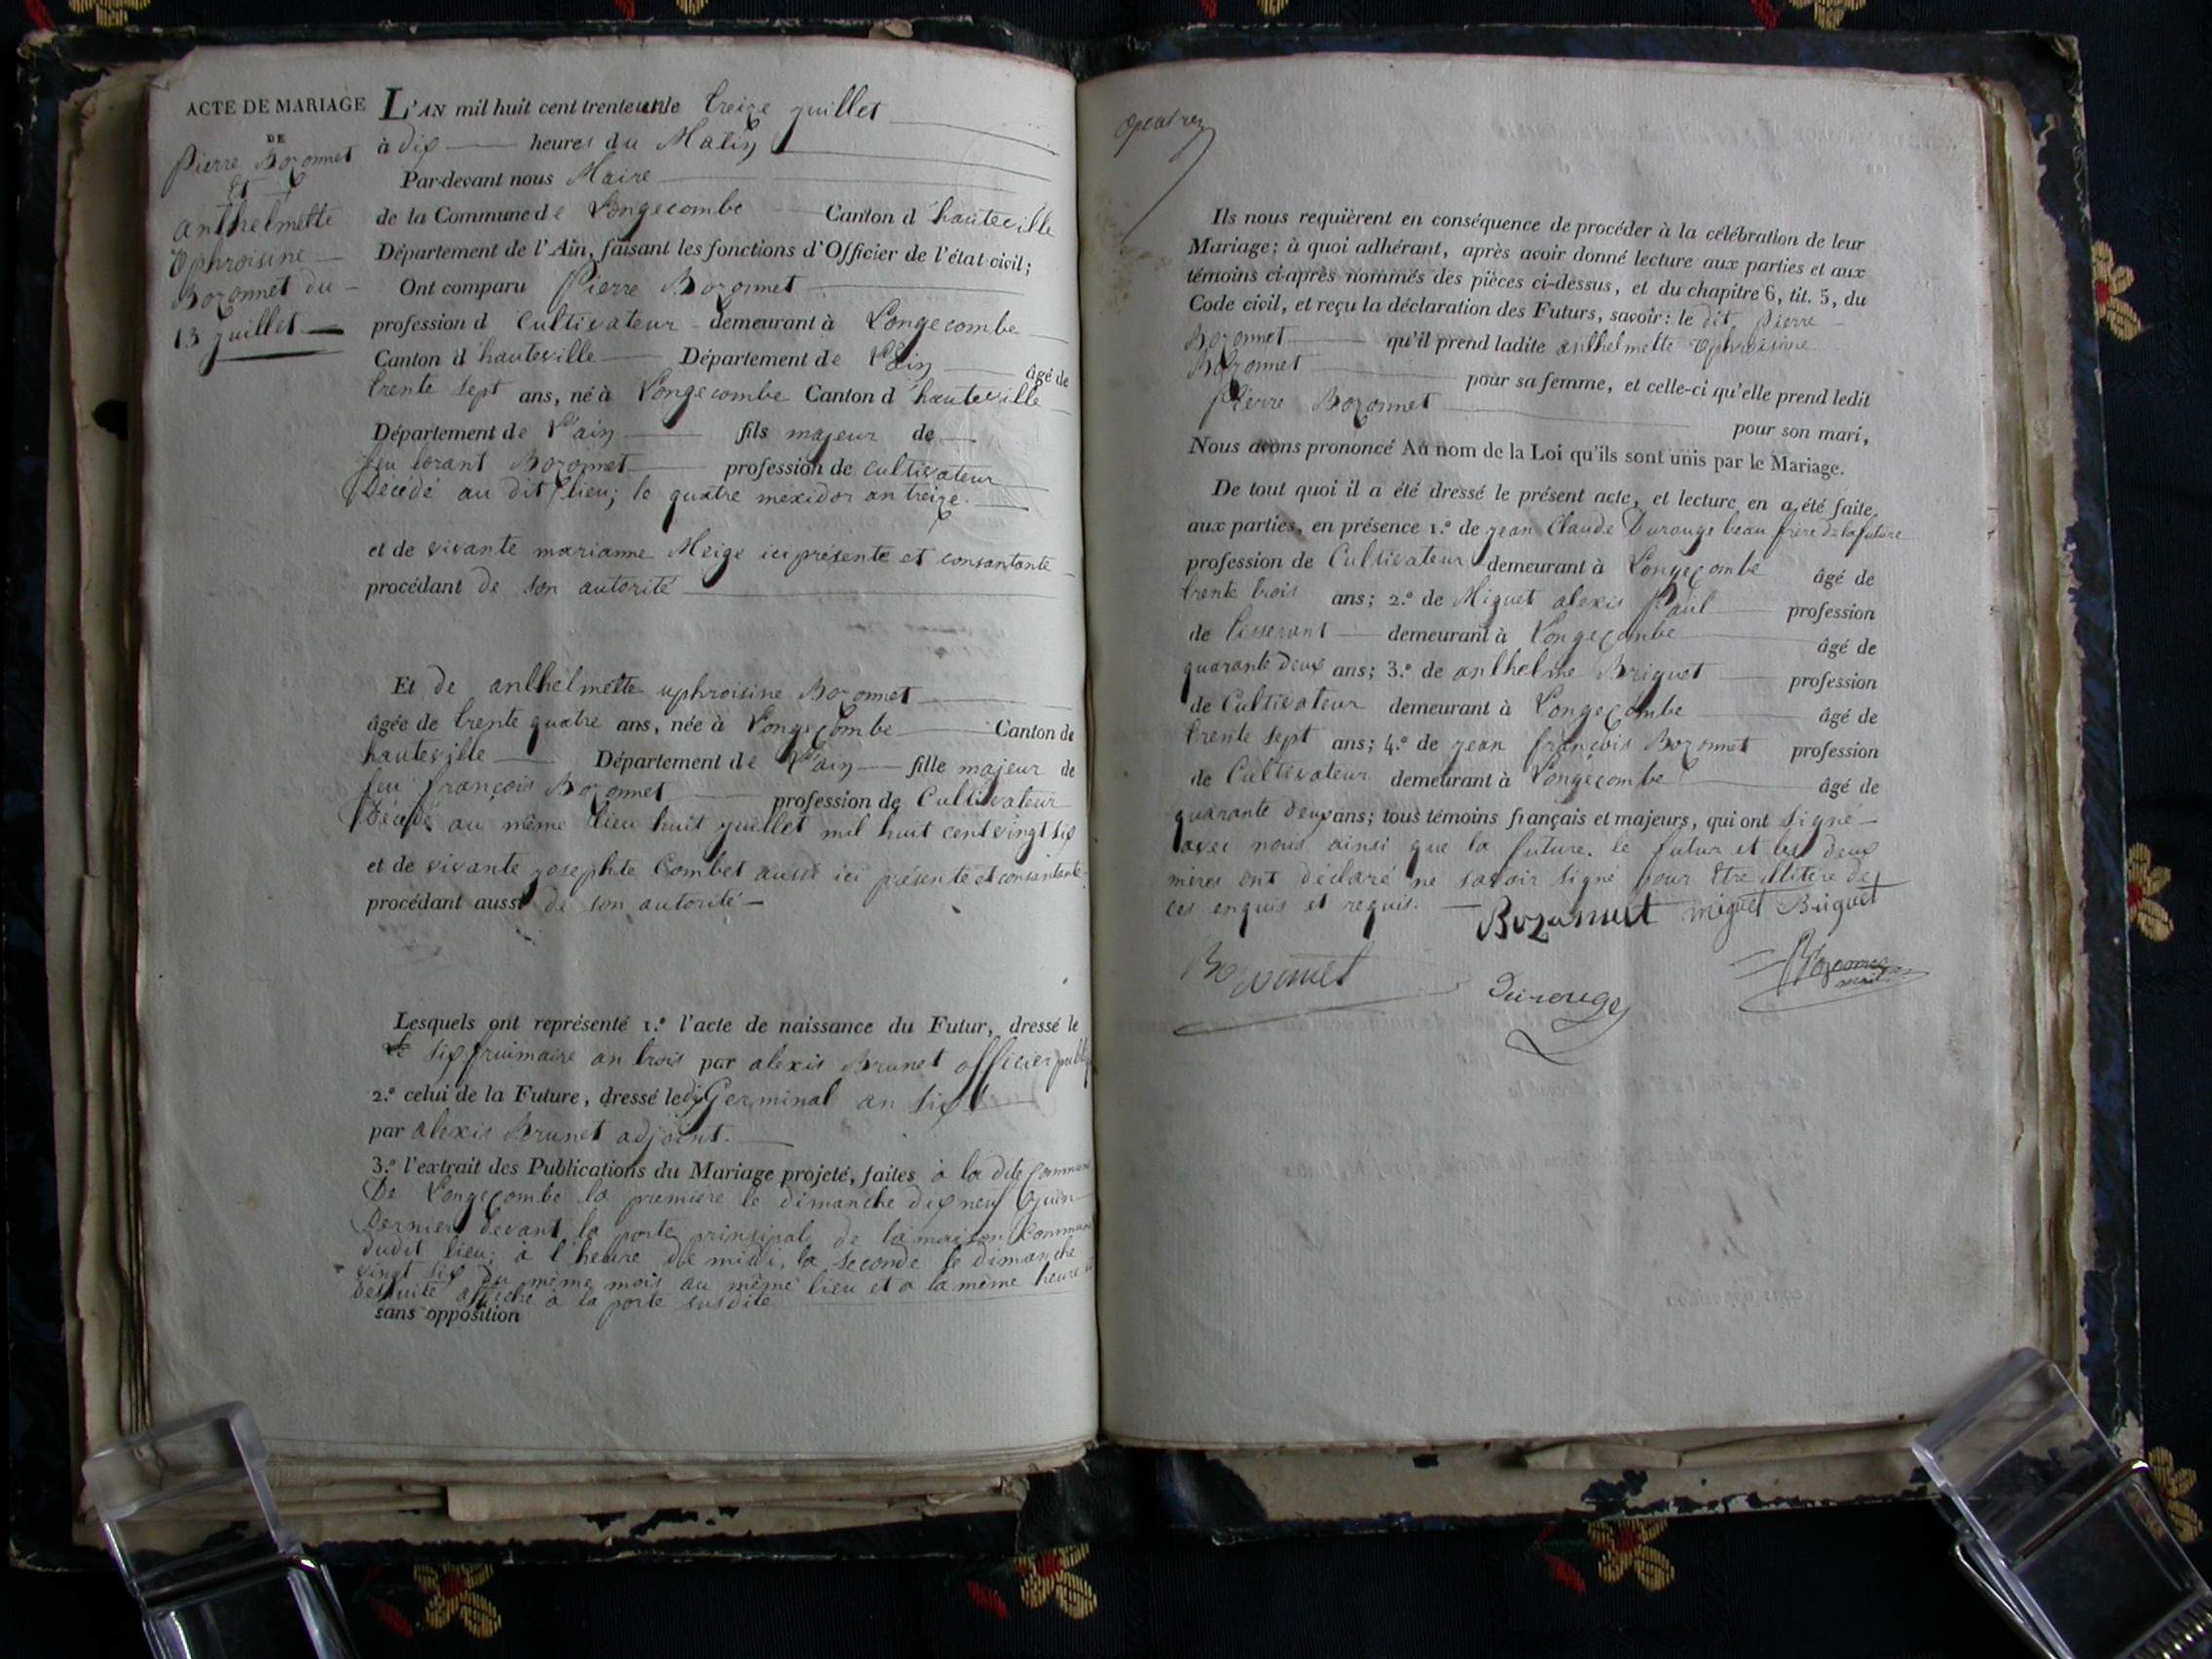 ACTE DE MARIAGE
DE
Pierre Bozonnet
Et
anthelmette
Uphroisine
Bozonnet du
13 juillet
L'AN mil huit cent trente un le treize juillet
à dix heures du Matin
Par-devant nous Maire
de la Commune de Longecombe Canton d'hauteville
Département de l'Ain, faisant les fonctions d'Officier de l'état civil;
Ont comparu Pierre Bozonnet
profession d Cultivateur demeurant à Longecombe
Canton d'hauteville Département de L'ain âgé de
trente sept ans, né à Longecombe Canton d'hauteville
Département de L'ain fils majeur de
feu lorant Bozonnet profession de Cultivateur
Décédé au dit lieu; le quatre mexidor an treize.
et de vivante marianne Meige ici présente et consantante
procédant de son autorité
Et de anthelmette uphroisine Bozonnet
âgée de trente quatre ans, née à Longecombe Canton de
hauteville Département de L'ain fille majeur de
feu françois Bozonnet profession de Cultivateur
Décédé au même lieu huit juillet mil huit cent vingt six
et de vivante josephte Combet aussi ici présente et consantante
procédant aussi de son autorité
Lesquels ont représenté 1.º l'acte de naissance du Futur, dressé le
six fruimaire an trois par alexis Brunet officier public
2.º celui de la Future, dressé le dix Germinal an six
par alexis Brunet adjoint.
3.º l'extrait des Publications du Mariage projeté, faites à la dite Commune
De Longecombe la premiere le dimanche dix neuf juin
Dernier devant la porte prinsipale de la maison Commune
dudit lieu; à l'heure de midi, la seconde le dimanche
vingt six du même mois au même lieu et a la même heure
desuite affiché à la porte susdite
sans opposition
Ils nous requièrent en conséquence de procéder à la célébration de leur
Mariage; à quoi adhérant, après avoir donné lecture aux parties et aux
témoins ci-après nommés des pièces ci-dessus, et du chapitre 6, tit. 5, du
Code civil, et reçu la déclaration des Futurs, savoir: le dit Pierre
Bozonnet qu'il prend ladite anthelmette Uphroisine
Bozonnet pour sa femme, et celle-ci qu'elle prend ledit
Pierre Bozonnet pour son mari,
Nous avons prononcé Au nom de la Loi qu'ils sont unis par le Mariage.
De tout quoi il a été dressé le présent acte, et lecture en a été faite,
aux parties, en présence 1.º de jean Claude Durouge beau frère de la future
profession de Cultivateur demeurant à Longecombe âgé de
trente trois ans; 2.º de Miguet alexis Paul profession
de tisserant demeurant à Longecombe âgé de
quarante deux ans; 3.º de anthelme Briguet profession
de Cultivateur demeurant à Longecombe âgé de
trente sept ans; 4.º de jean françois Bozonnet profession
de Cultivateur demeurant à Longecombe âgé de
quarante deux ans; tous témoins français et majeurs, qui ont signé
avec nous ainsi que la future. le futur et les deux
mères ont déclaré ne savoir signé pour être illitere de
ces enquis et requis.
Bozonnet miguet Briguet
Bozonnet
Durouge
Bozonnet